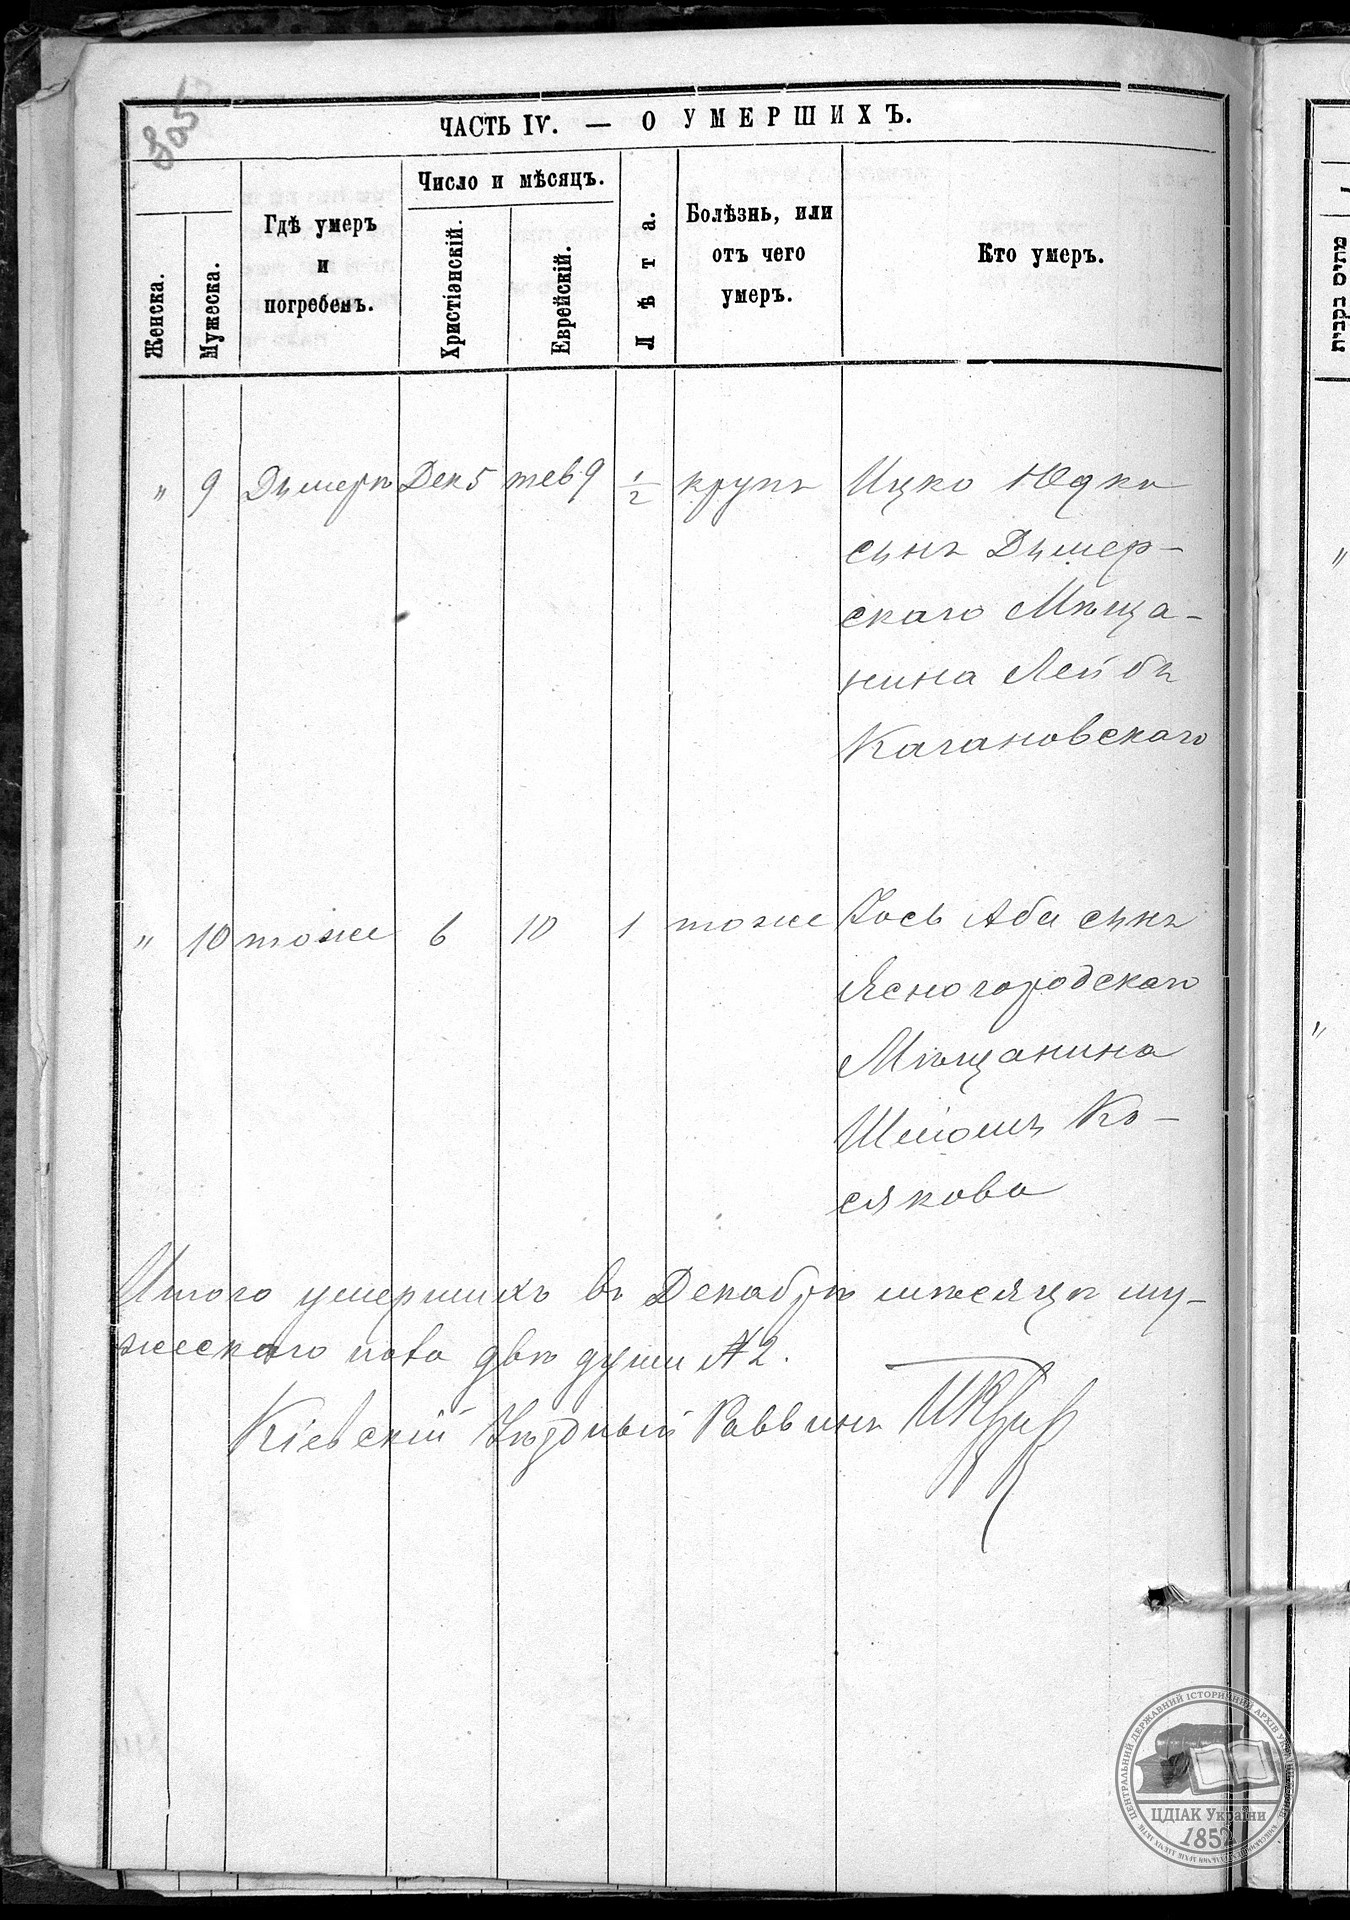 805
ЧАСТЬ IV. — О УМЕРШИХЪ.
Женска.
Мужеска.
Гдѣ умеръ
и
погребенъ.
Число и мѣсяцъ.
Христіанскій.
Еврейскій.
Лѣта.
Болѣзнь, или
отъ чего
умеръ.
Кто умеръ.
" 9 Дымеръ Дек 5 тев 9 1/2 крупъ Ицко Юдко
сынъ Дымер-
скаго Мѣща-
нина Лейбы
Кагановскаго
" 10 тоже 6 10 1 тоже Іось Аба сынъ
Ясногородскаго
Мѣщанина
Шліомы Ко-
сякова
Итого умершихъ въ Декабрѣ мѣсяцѣ му-
жескаго пола двѣ души № 2.
Кіевскій Уѣздный Раввинъ
מתים בקבית
"
"
ЦЕНТРАЛЬНИЙ ДЕРЖАВНИЙ ІСТОРИЧНИЙ АРХІВ УКРАЇНИ
ЦДІАК України
1852